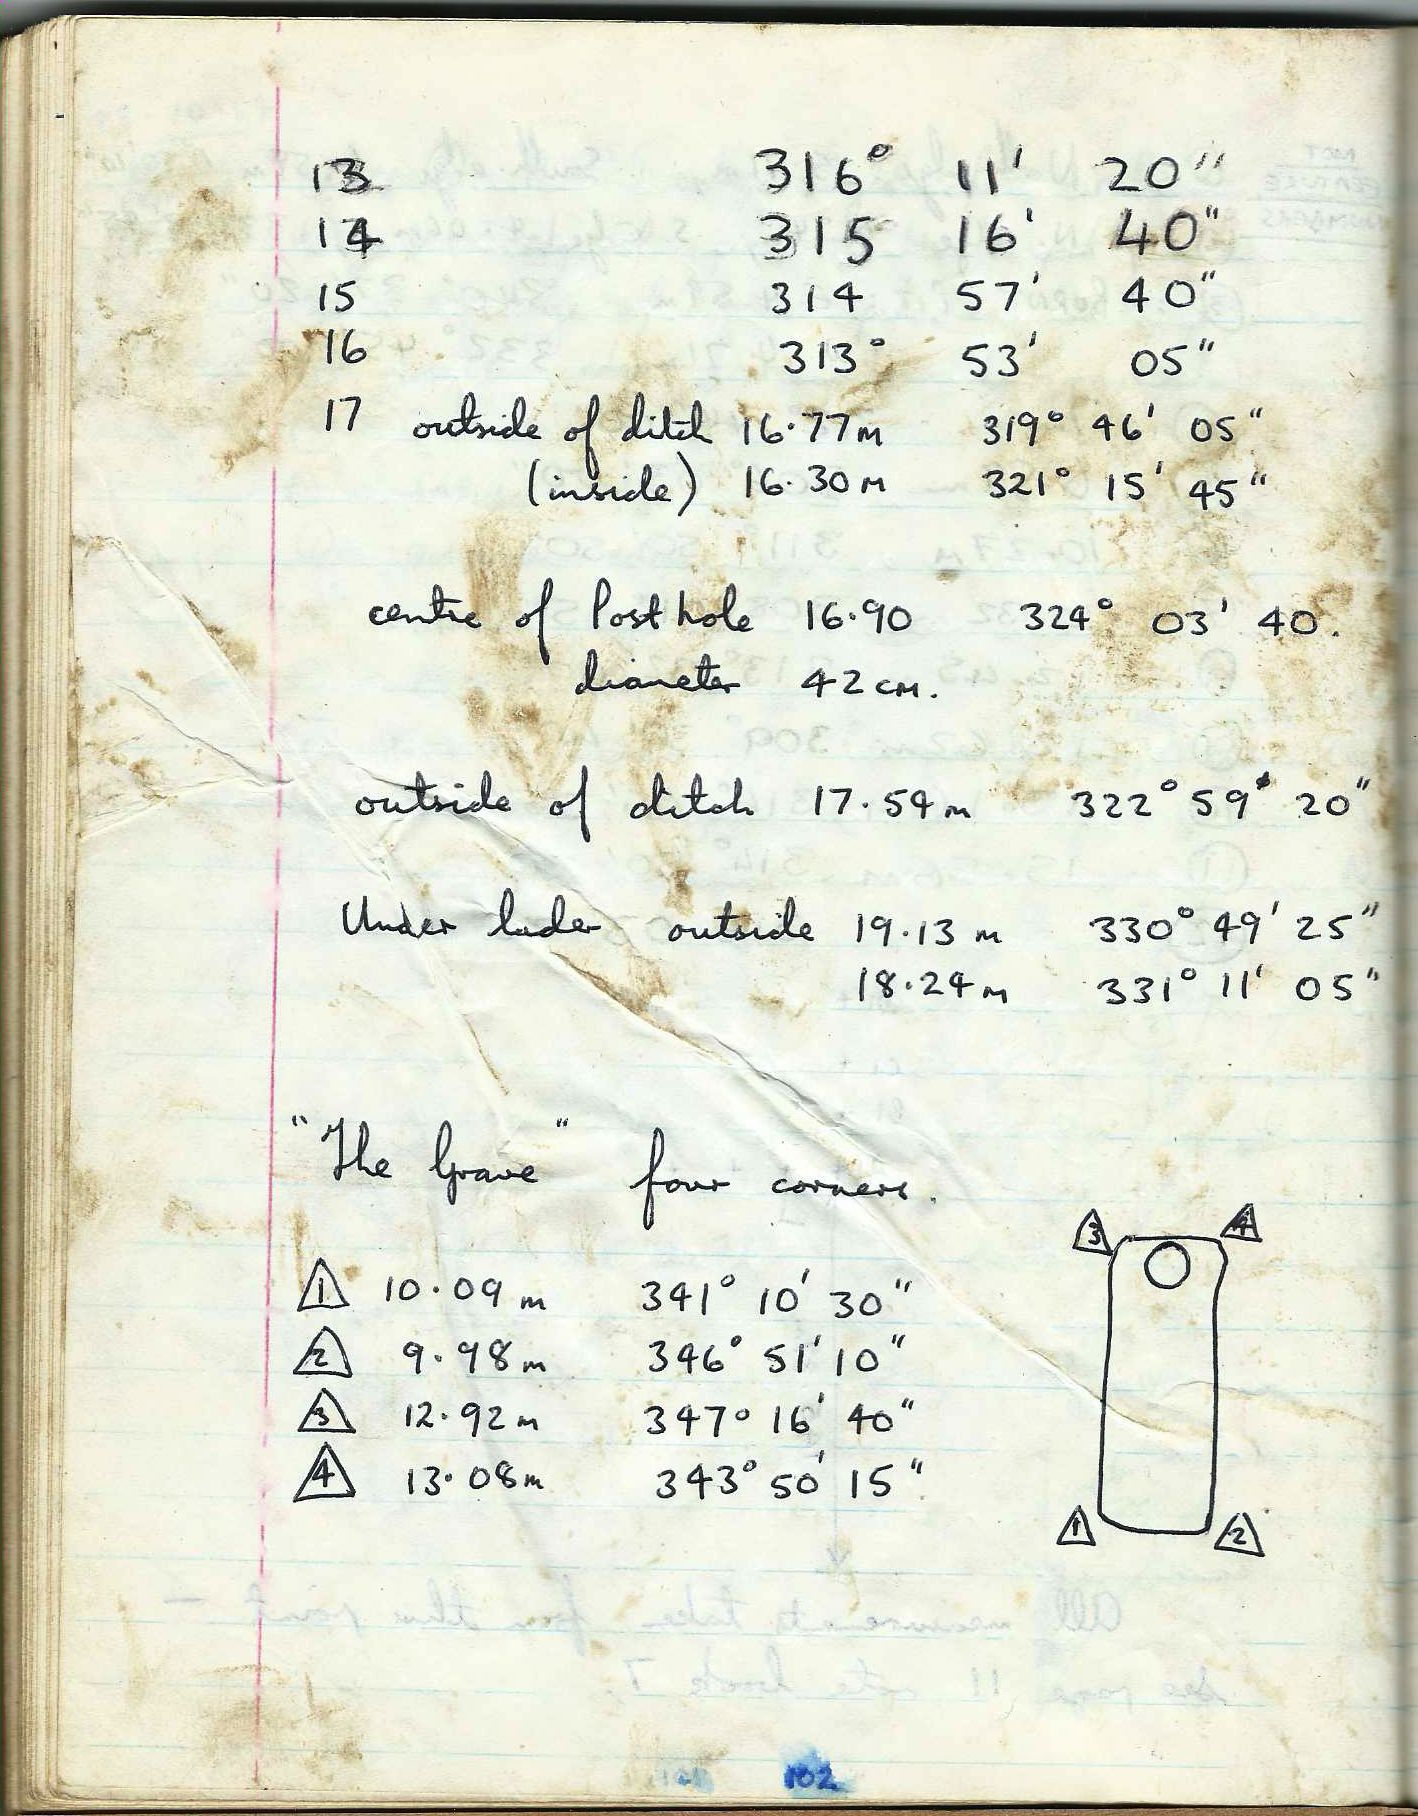 13 316° 11' 20"
14 315 16' 40"
15 314 57' 40"
16 313° 53' 05"
17 outside of ditch 16.77m 319° 46' 05"
(inside) 16.30m 321° 15' 45"
centre of Posthole 16.90 324° 03' 40.
diameter 42cm.
outside of ditch 17.54m 322° 59' 20"
Under lader outside 19.13m 330° 49' 25"
18.24m 331° 11' 05"
"The Grave" four corners.
3 4
1 10.09m 341° 10' 30"
2 9.98m 346° 51' 10"
3 12.92m 347° 16' 40"
4 13.08m 343° 50' 15"
1 2
102